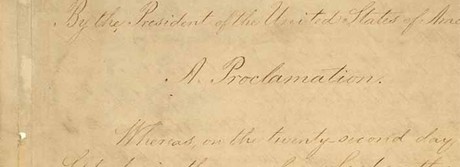 By the President of the United States of Ame
A Proclamation.
Whereas, on the twenty-second day